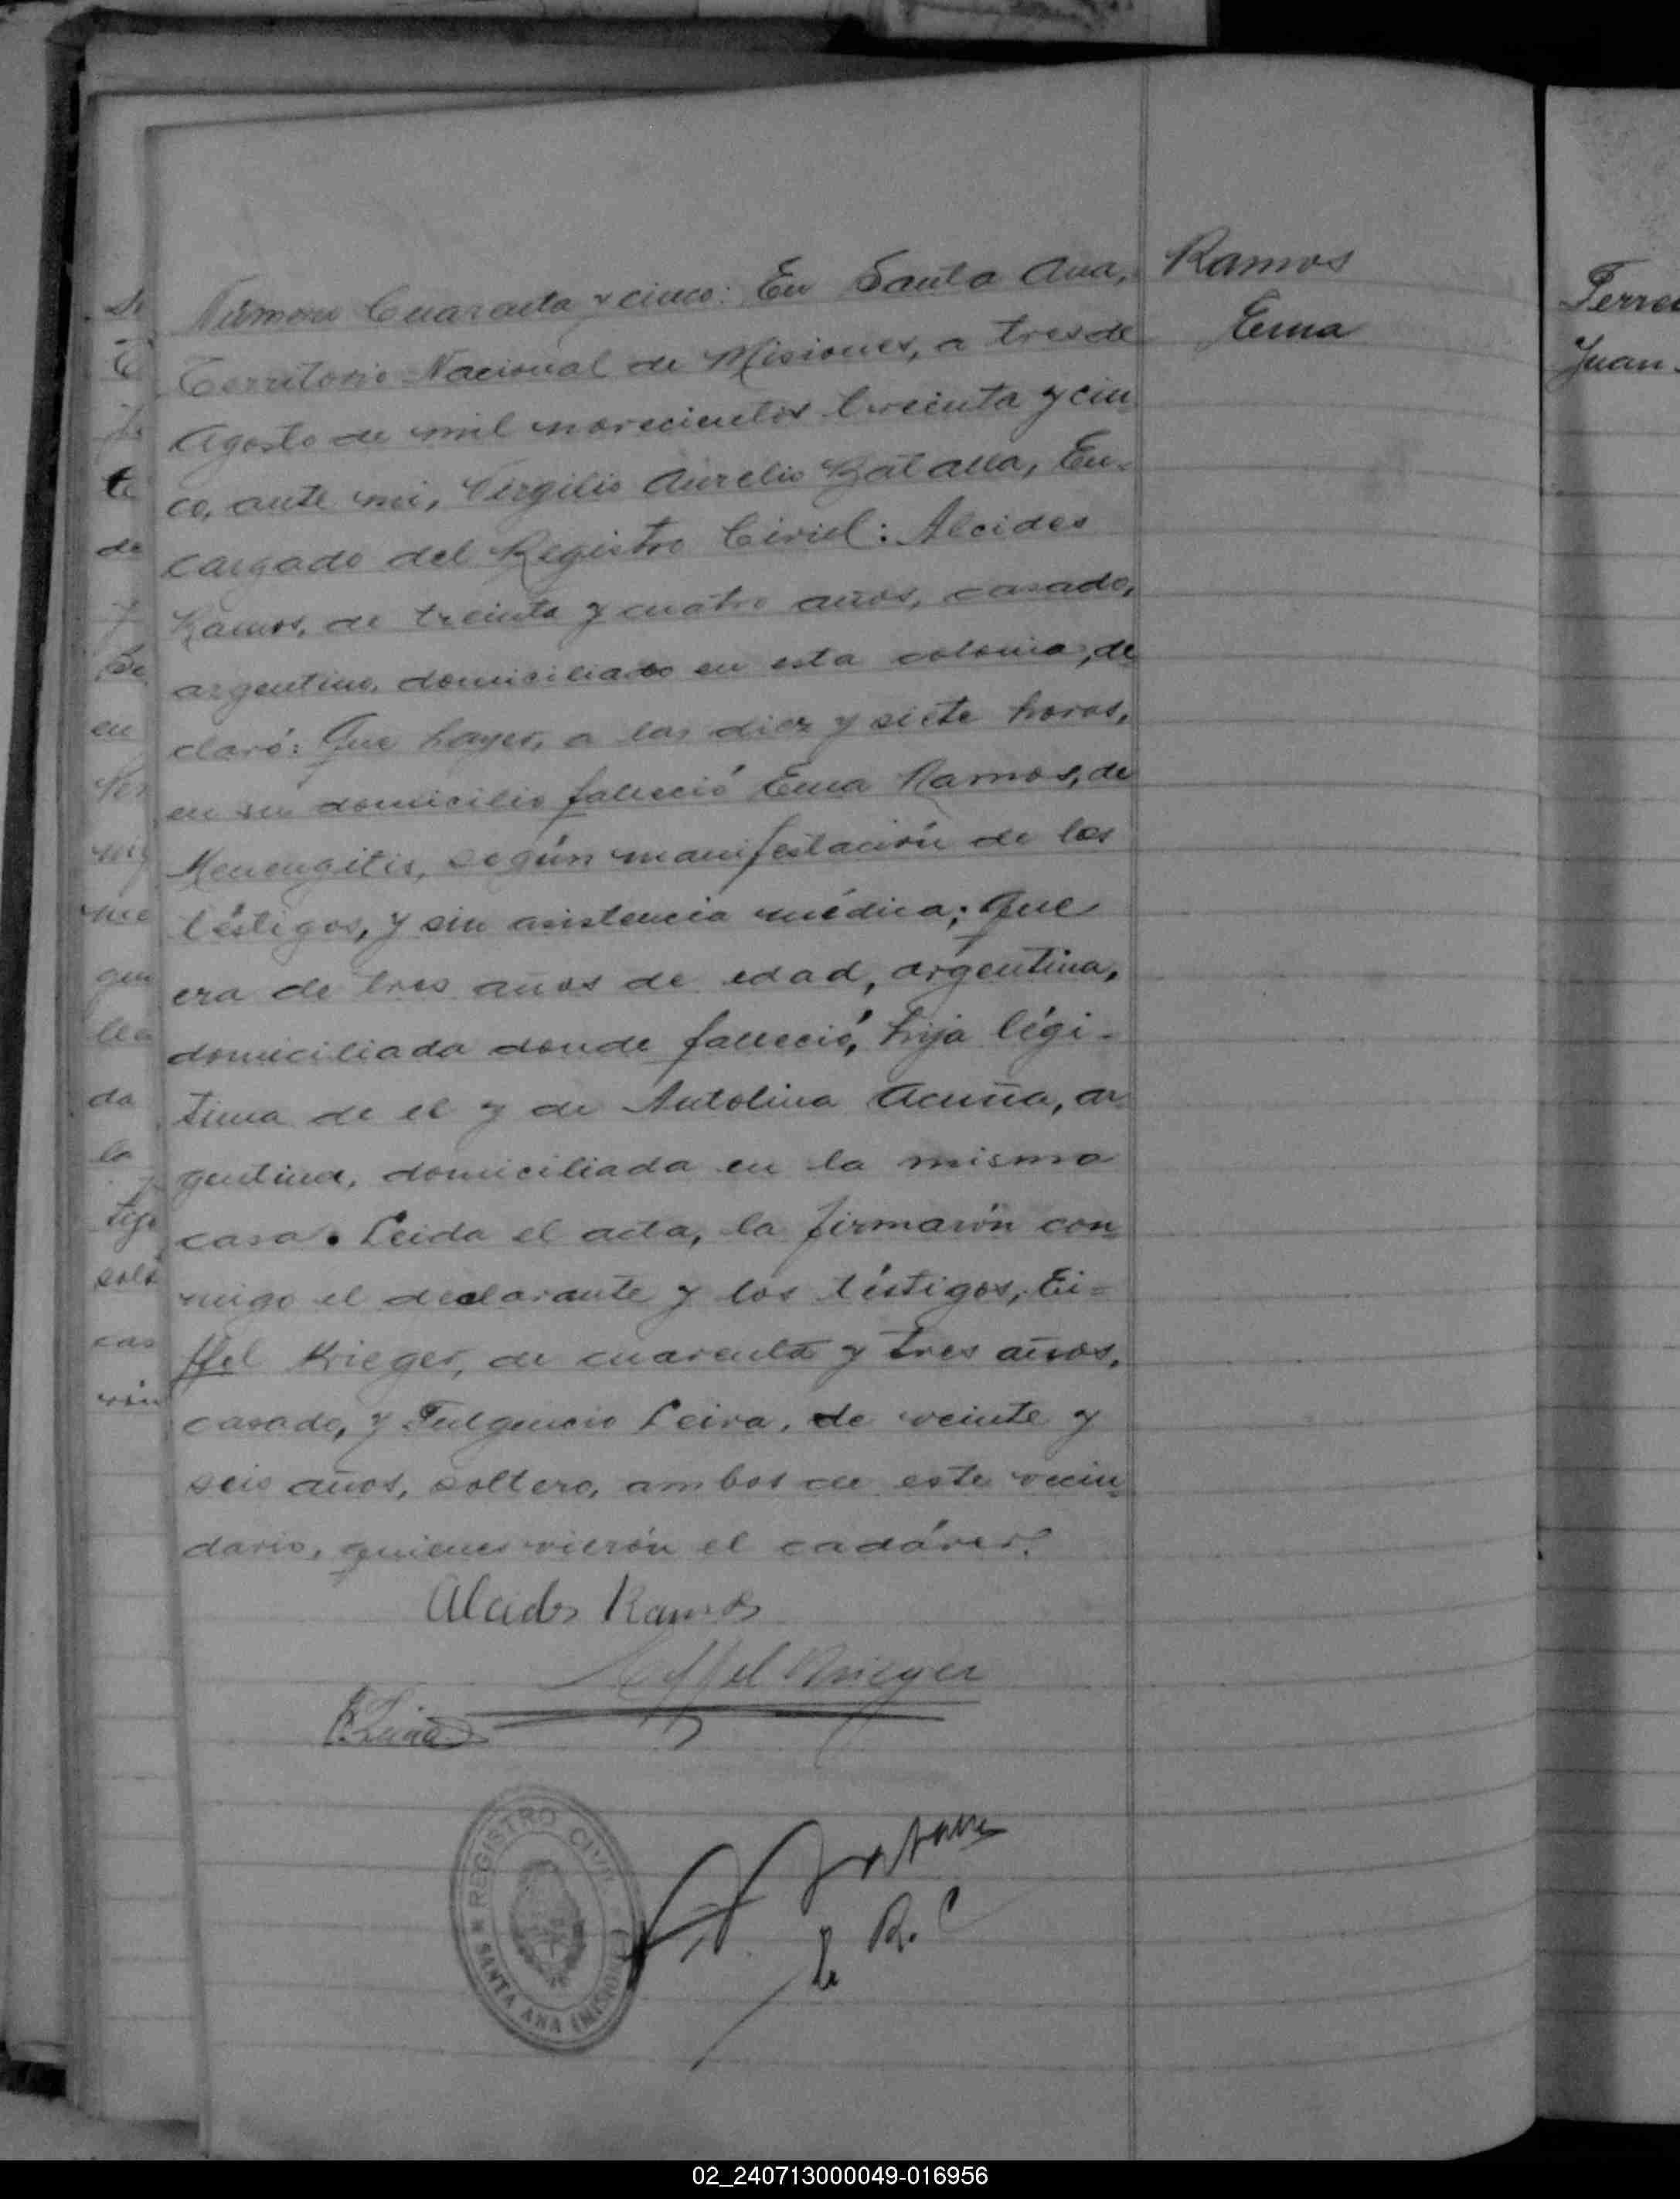 Número Cuarenta y cinco: En Santa Ana,
Territorio Nacional de Misiones, a tres de
Agosto de mil novecientos treinta y cin
co, ante mi, Virgilio Aurelio Zatalla, En=
cargado del Registro Civil: Alcides
Ramos, de treinta y cuatro años, casado,
argentino, domiciliado en esta colonia, de
claró: Que hayer, a las diez y siete horas,
en su domicilio falleció Ema Ramos, de
Menengitis, según manifestación de los
téstigos, y sin asistencia médica; Que
era de tres años de edad, argentina,
domiciliada donde falleció, hija légi-
tima de el y de Antolina Acuña, ar
gentina, domiciliada en la misma
casa. Leida el acta, la firmarón con
migo el declarante y los téstigos, Ei=
ffel Krieger, de cuarenta y tres años,
casado, y Fulgencio Leiva, de veinte y
seis años, soltero, ambos de este vecin
dario, quienes vierón el cadáver.
Ramos
Ema
Alcides Ramos
Eiffel Krieger
F. Leiva
REGISTRO CIVIL
SANTA ANA (MISIONES)
R. C
Juan
02_240713000049-016956